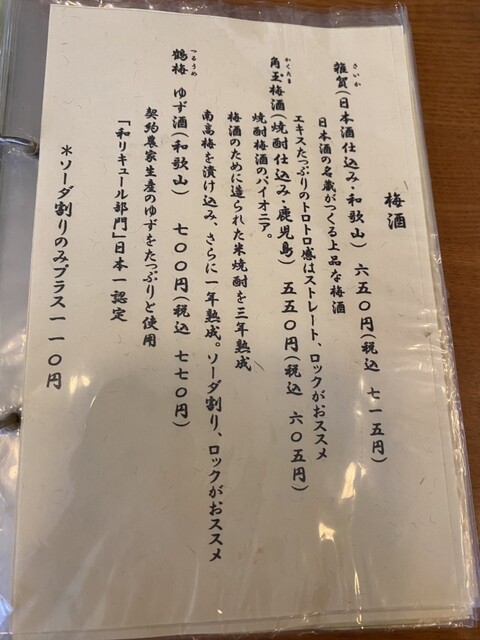 梅酒
雑賀(日本酒仕込み・和歌山) 六五〇円(税込 七一五円)
さいか
日本酒の名蔵がつくる上品な梅酒
エキスたっぷりのトロトロ感はストレート、ロックがおススメ
角玉梅酒(焼酎仕込み・鹿児島) 五五〇円(税込 六〇五円)
かくたま
焼酎梅酒のパイオニア。
梅酒のために造られた米焼酎を三年熟成
南高梅を漬け込み、さらに一年熟成。ソーダ割り、ロックがおススメ
鶴梅 ゆず酒(和歌山) 七〇〇円(税込 七七〇円)
つるうめ
契約農家生産のゆずをたっぷりと使用
「和リキュール部門」日本一認定
*ソーダ割りのみプラス一一〇円